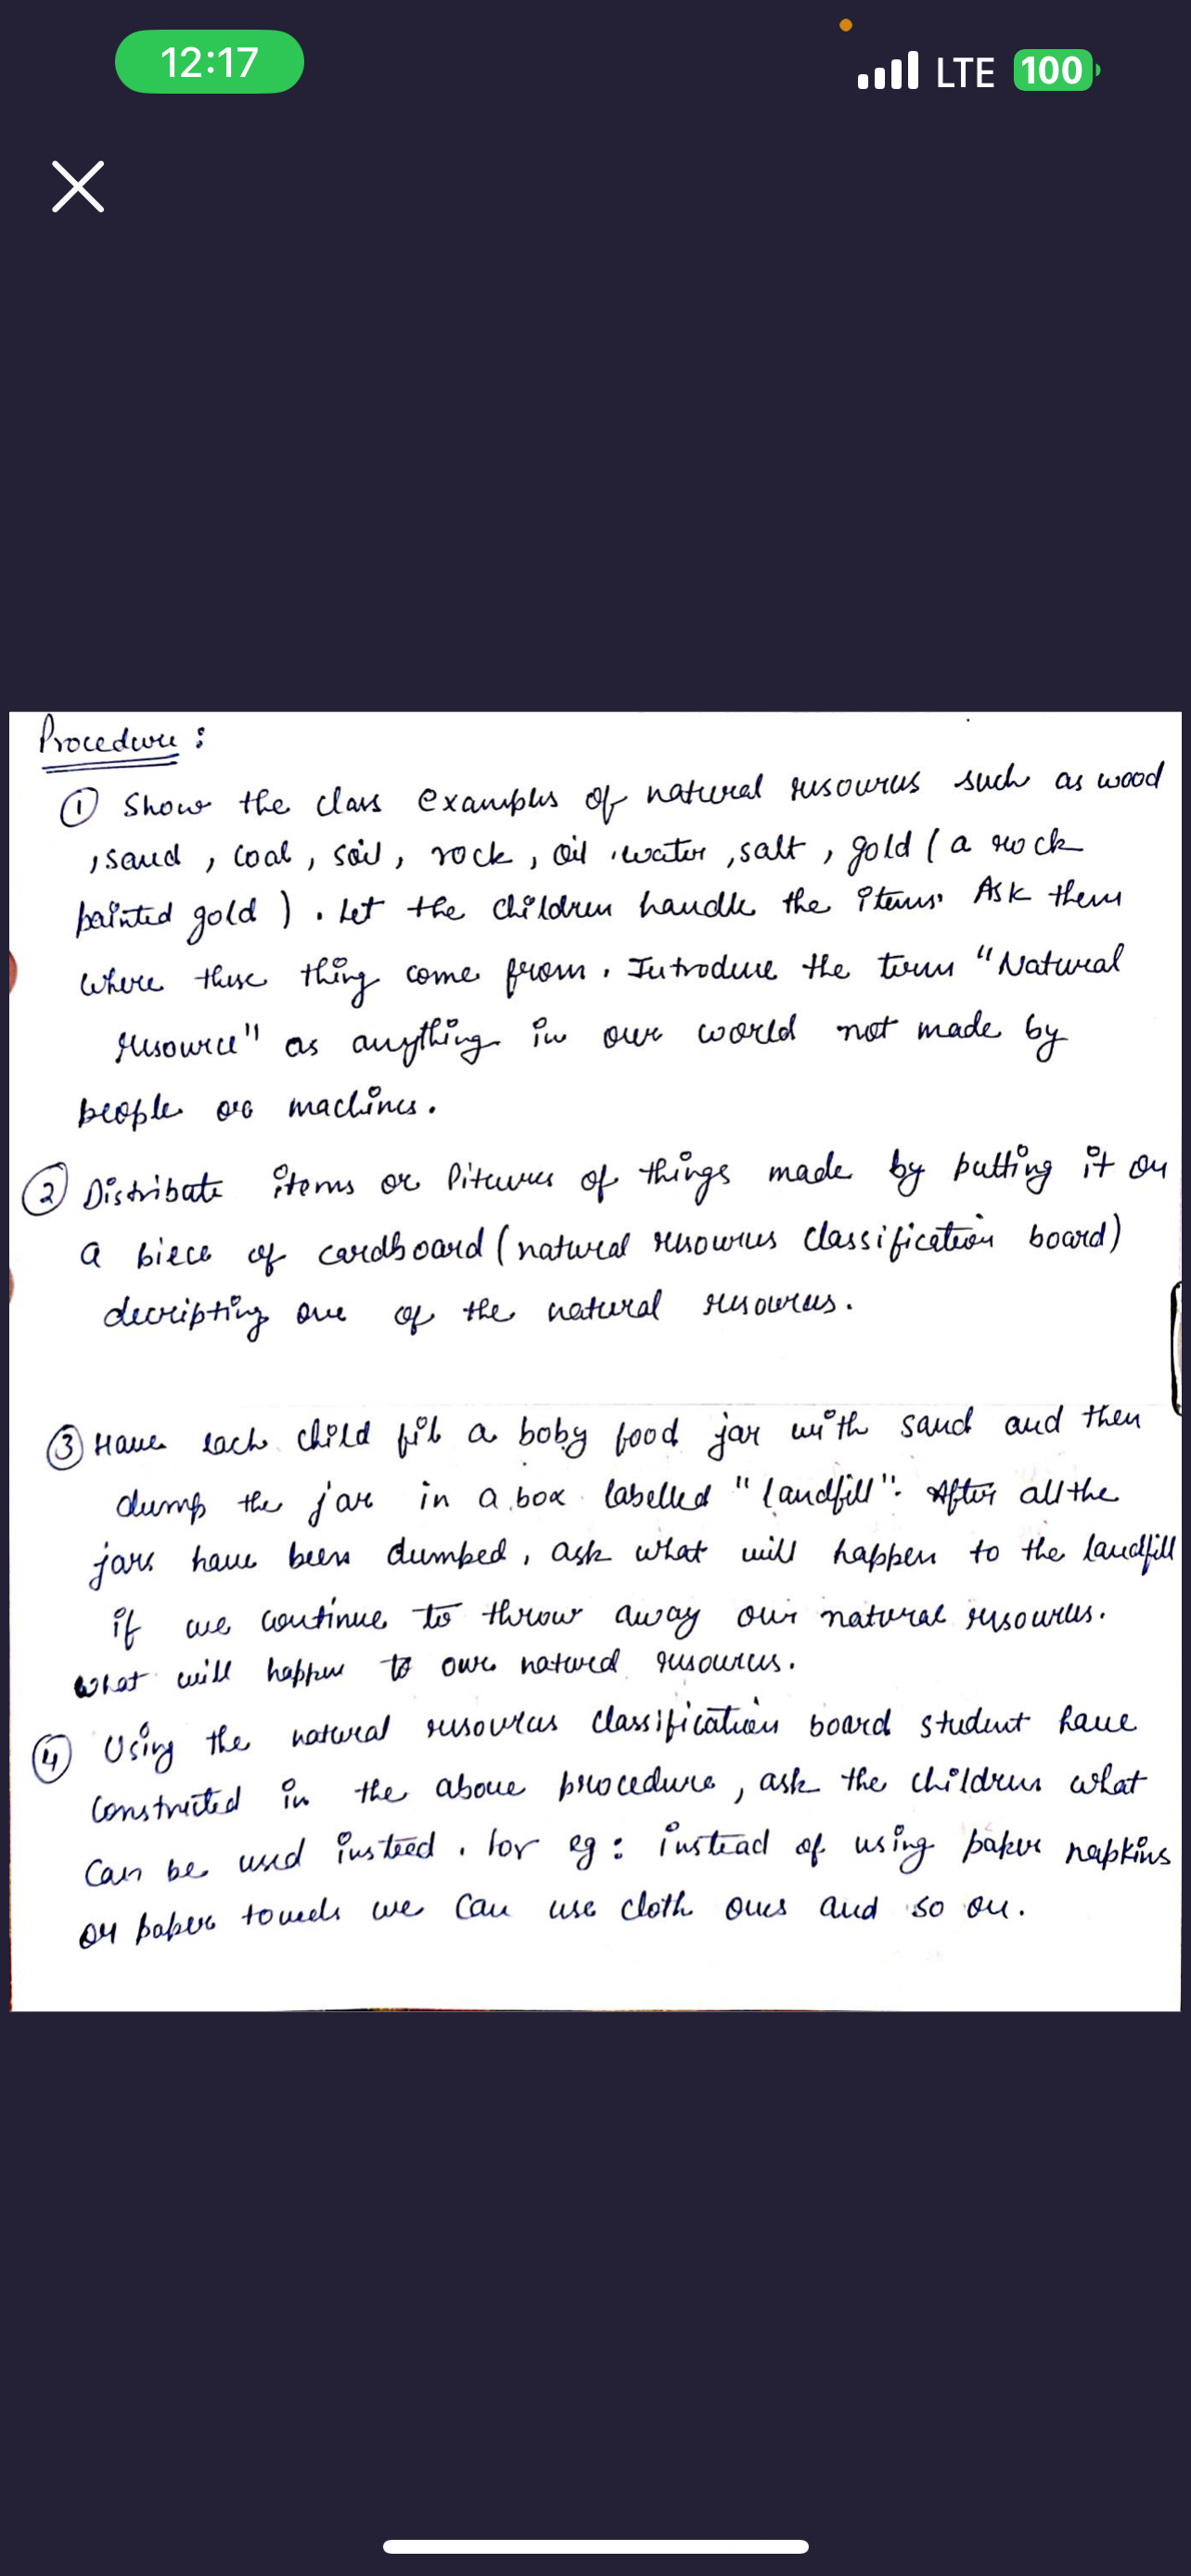 12:17
LTE 100
Procedure :
① Show the class examples of natural resources such as wood
, sand , coal , soil , rock , oil , water , salt , gold ( a rock
painted gold ) . Let the children handle the items. Ask them
where these thing come from . Introduce the term "Natural
resource" as anything in our world not made by
people or machines .
② Distribate items or Pitcures of things made by putting it on
a piece of cardboard ( natural resources classification board )
decripting one of the natural resources .
③ Have each child fill a boby food jar with sand and then
dump the jar in a box labelled "landfill". After all the
jars have been dumped , ask what will happen to the landfill
if we continue to throw away our natural resources .
What will happen to our natural resources .
④ Using the natural resources classification board student have
constructed in the above procedure , ask the children what
can be used insteed . for eg : instead of using paper napkins
or paper towels we can use cloth ones and so on .